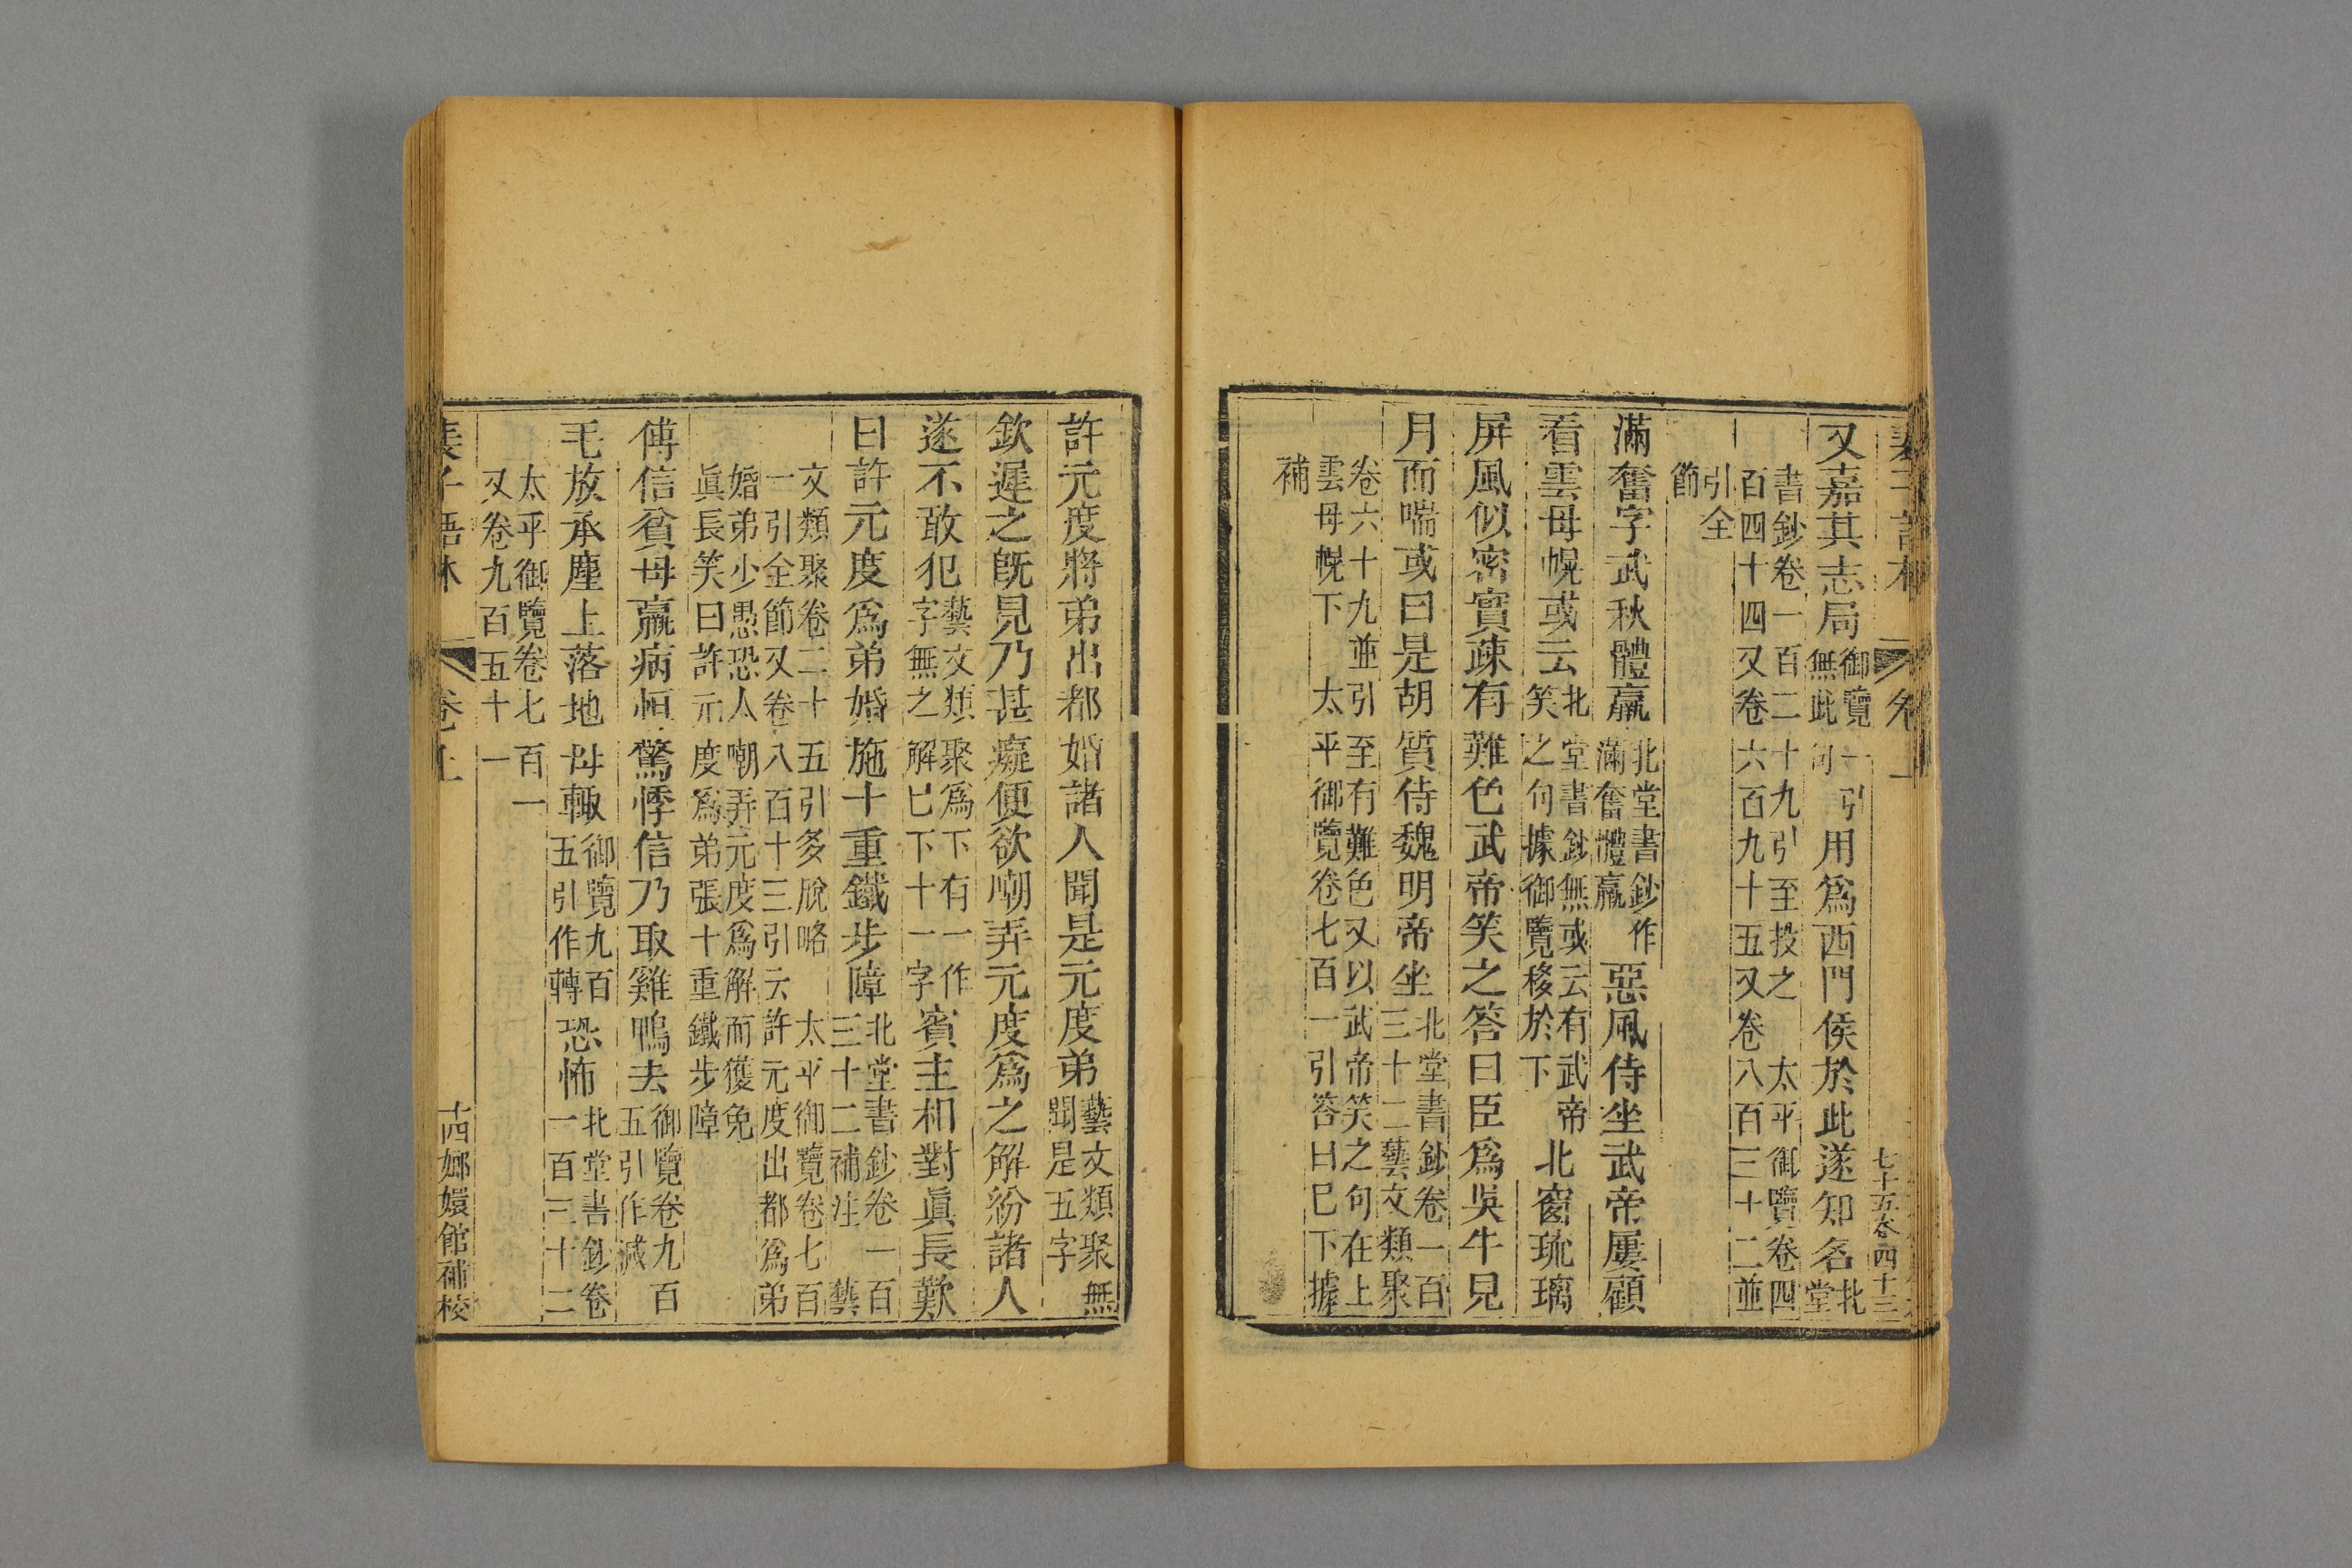 裴子語林 卷上 七十五卷四十三
又嘉其志局御覽一引無此句用爲西門侯於此遂知名北堂
書鈔卷一百二十九引至投之 太平御覽卷四
百四十四又卷六百九十五又卷八百三十二並
引全
節
滿奮字武秋體羸北堂書鈔作滿奮體羸惡風侍坐武帝屢顧
看雲母幌或云北堂書鈔無或云有武帝笑之句據御覽移於下北窗琉璃
屏風似密實疎有難色武帝笑之答曰臣爲吳牛見
月而喘或曰是胡質侍魏明帝坐北堂書鈔卷一百三十二藝文類聚
卷六十九並引至有難色又以武帝笑之句在上
雲母幌下 太平御覽卷七百一引答曰巳下據
補
許元度將弟出都婚諸人聞是元度弟藝文類聚無聞是五字
欽遲之旣見乃甚癡便欲嘲弄元度爲之解紛諸人
遂不敢犯藝文類聚爲下有一作字無之解巳下十一字賓主相對眞長歎
曰許元度爲弟婚施十重鐵步障北堂書鈔卷一百三十二補注 藝
文類聚卷二十五引多脫略 太平御覽卷七百
一引全節又卷八百十三引云許元度出都爲弟
婚弟少愚恐人嘲弄元度爲解而獲免
眞長笑曰許元度爲弟張十重鐵步障
傅信貧母羸病恒驚悸信乃取雞鴨去御覽卷九百五引作滅
毛放承塵上落地母輒御覽九百五引作轉恐怖北堂書鈔卷一百三十二
太平御覽卷七百一
又卷九百五十一
裴子語林 卷上 十四 嫏嬛館補校